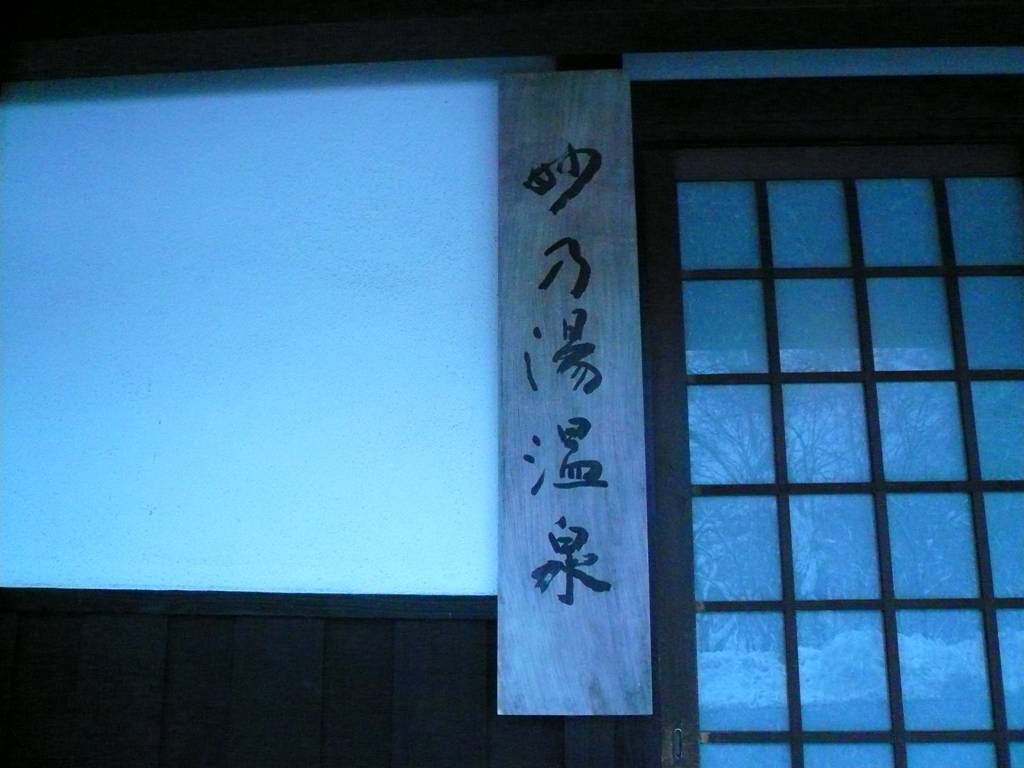 妙乃湯温泉